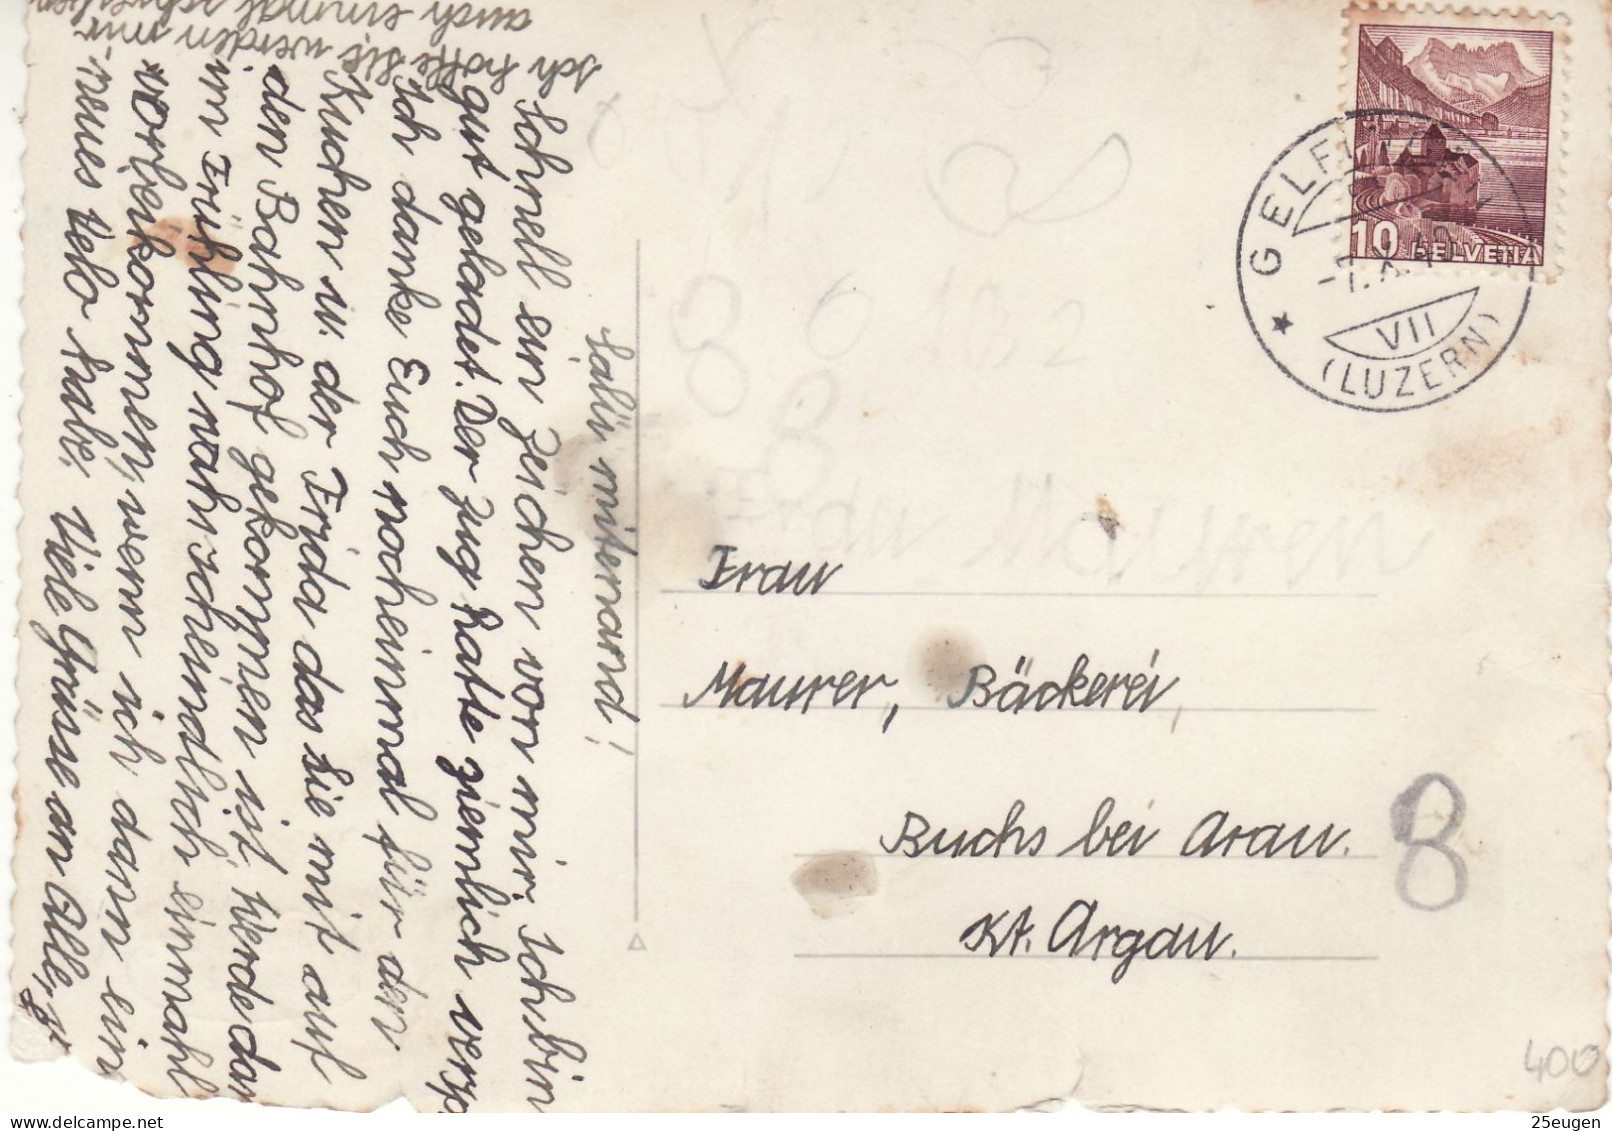 Salü miteinand!
Schnell ein Zeichen von mir. Ich bin
gut gelandet. Der Zug hatte ziemlich versp
Ich danke Euch nocheinmal für den
Kuchen u. der Frida das sie mit auf
den Bahnhof gekommen ist. Werde dan
im Frühling wahrscheindlich einmahl
vorbeikommen, wenn ich dann ein
neues Velo habe. Viele Grüsse an Alle,
Ich hoffe sie werden mir
auch einmal schreiben
10 HELVETIA
GELFINGEN
-7. X. 40
VII
(LUZERN)
Frau
Maurer, Bäckerei,
Buchs bei Arau.
Kt. Argau.
8
400
25eugen